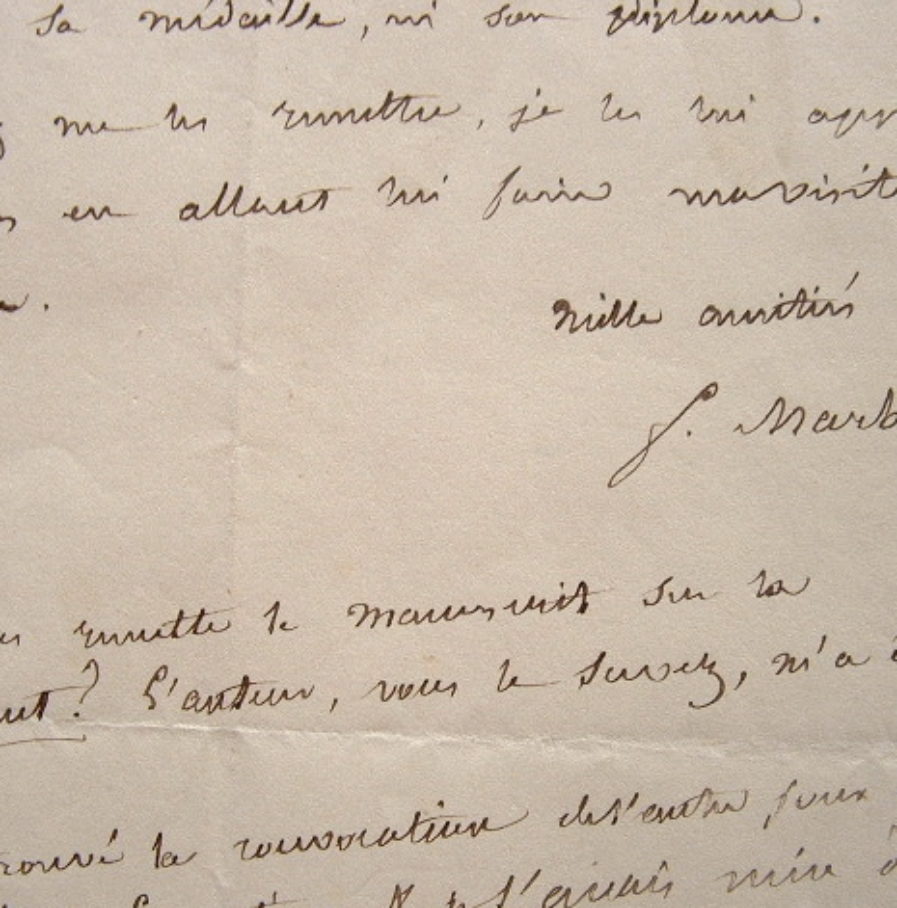 sa médaille, ni son diplome.
me les remettre, je les lui app
en allant lui faire ma visite
mille amitiés
J. Marb
remette le manuscrit sur la
? L'auteur, vous le savez, m'a
rouvé la convocation de l'autre jour
l'avais mise à